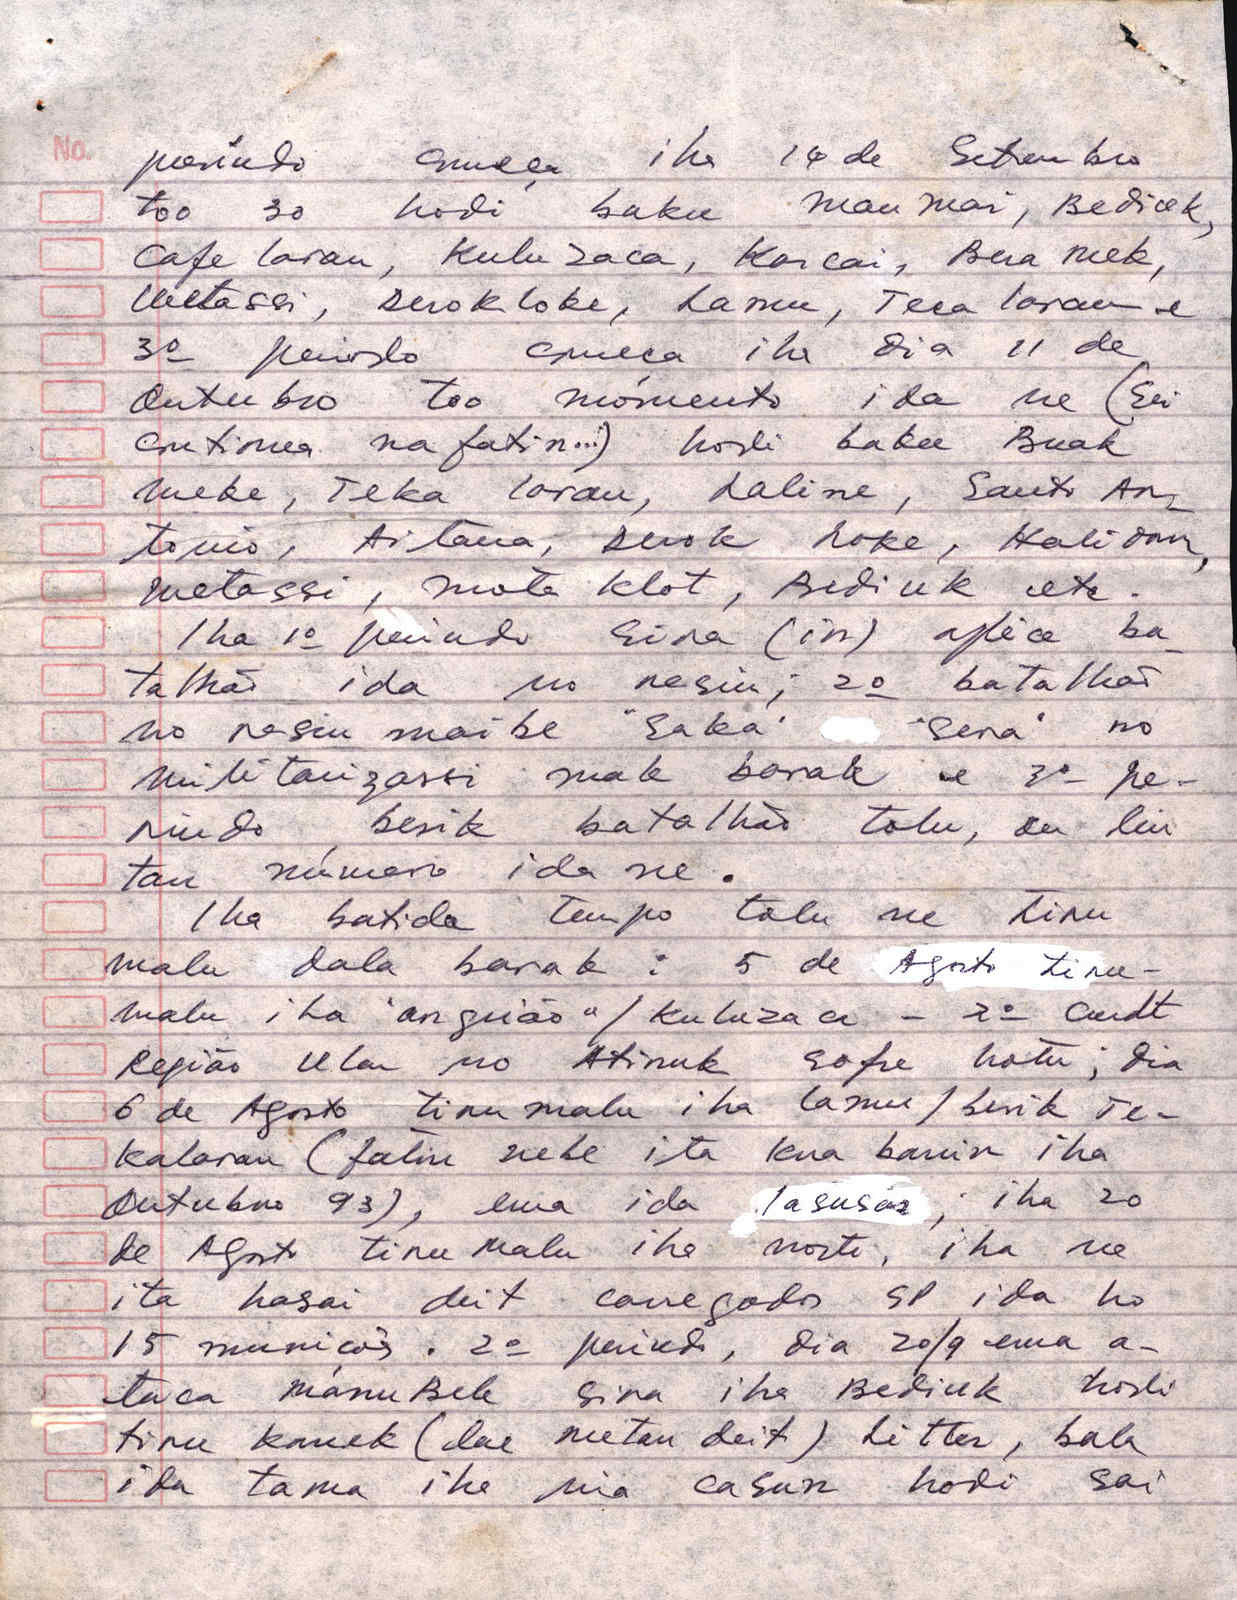 No.
período começa iha 14 de Setembro
too 30 hodi baku Maumai, Bediuk,
Cafe laran, Kulu Zaca, Karcai, Bera Mek,
Metassi, Derok loke, Lamu, Teca laran e
3º período começa iha dia 11 de
Outubro too mómento ida ne (Sei
continua nafatin...) hodi baku Buak
meke, Teka laran, Laline, Santo An-
tonio, Aitana, Derok Loke, Halidom,
Metassi, mota klot, Bediuk etc.
Iha 1º período sira (in) aplica ba-
talhão ida no resin; 2º batalhão
no resin maibe "Saka" "Sera" no
militarizassi mak barak e 3º pe-
ríodo besik batalhão tolu, ou liu
tan número ida ne.
Iha batida tempo tolu ne tiru
malu dala barak : 5 de Agosto tiru-
malu iha "anguião"/Kuluzaca - 2º Cmdt
Região Ular no Atinuk sofre hotu; dia
6 de Agosto tiru malu iha lamu/besik Te-
kalaran (fatin nebe ita kna banin iha
Outubro 93), ema ida lasusar; iha 20
de Agosto tiru malu iha norte, iha ne
ita hasai deit carregador SP ida ho
15 munições. 2º período, dia 20/9 ema a-
taca Mánu Bele sira iha Bediuk hodi
tiru kanek (lae netan deit) Litter, bala
ida tama iha nia casun hodi sai